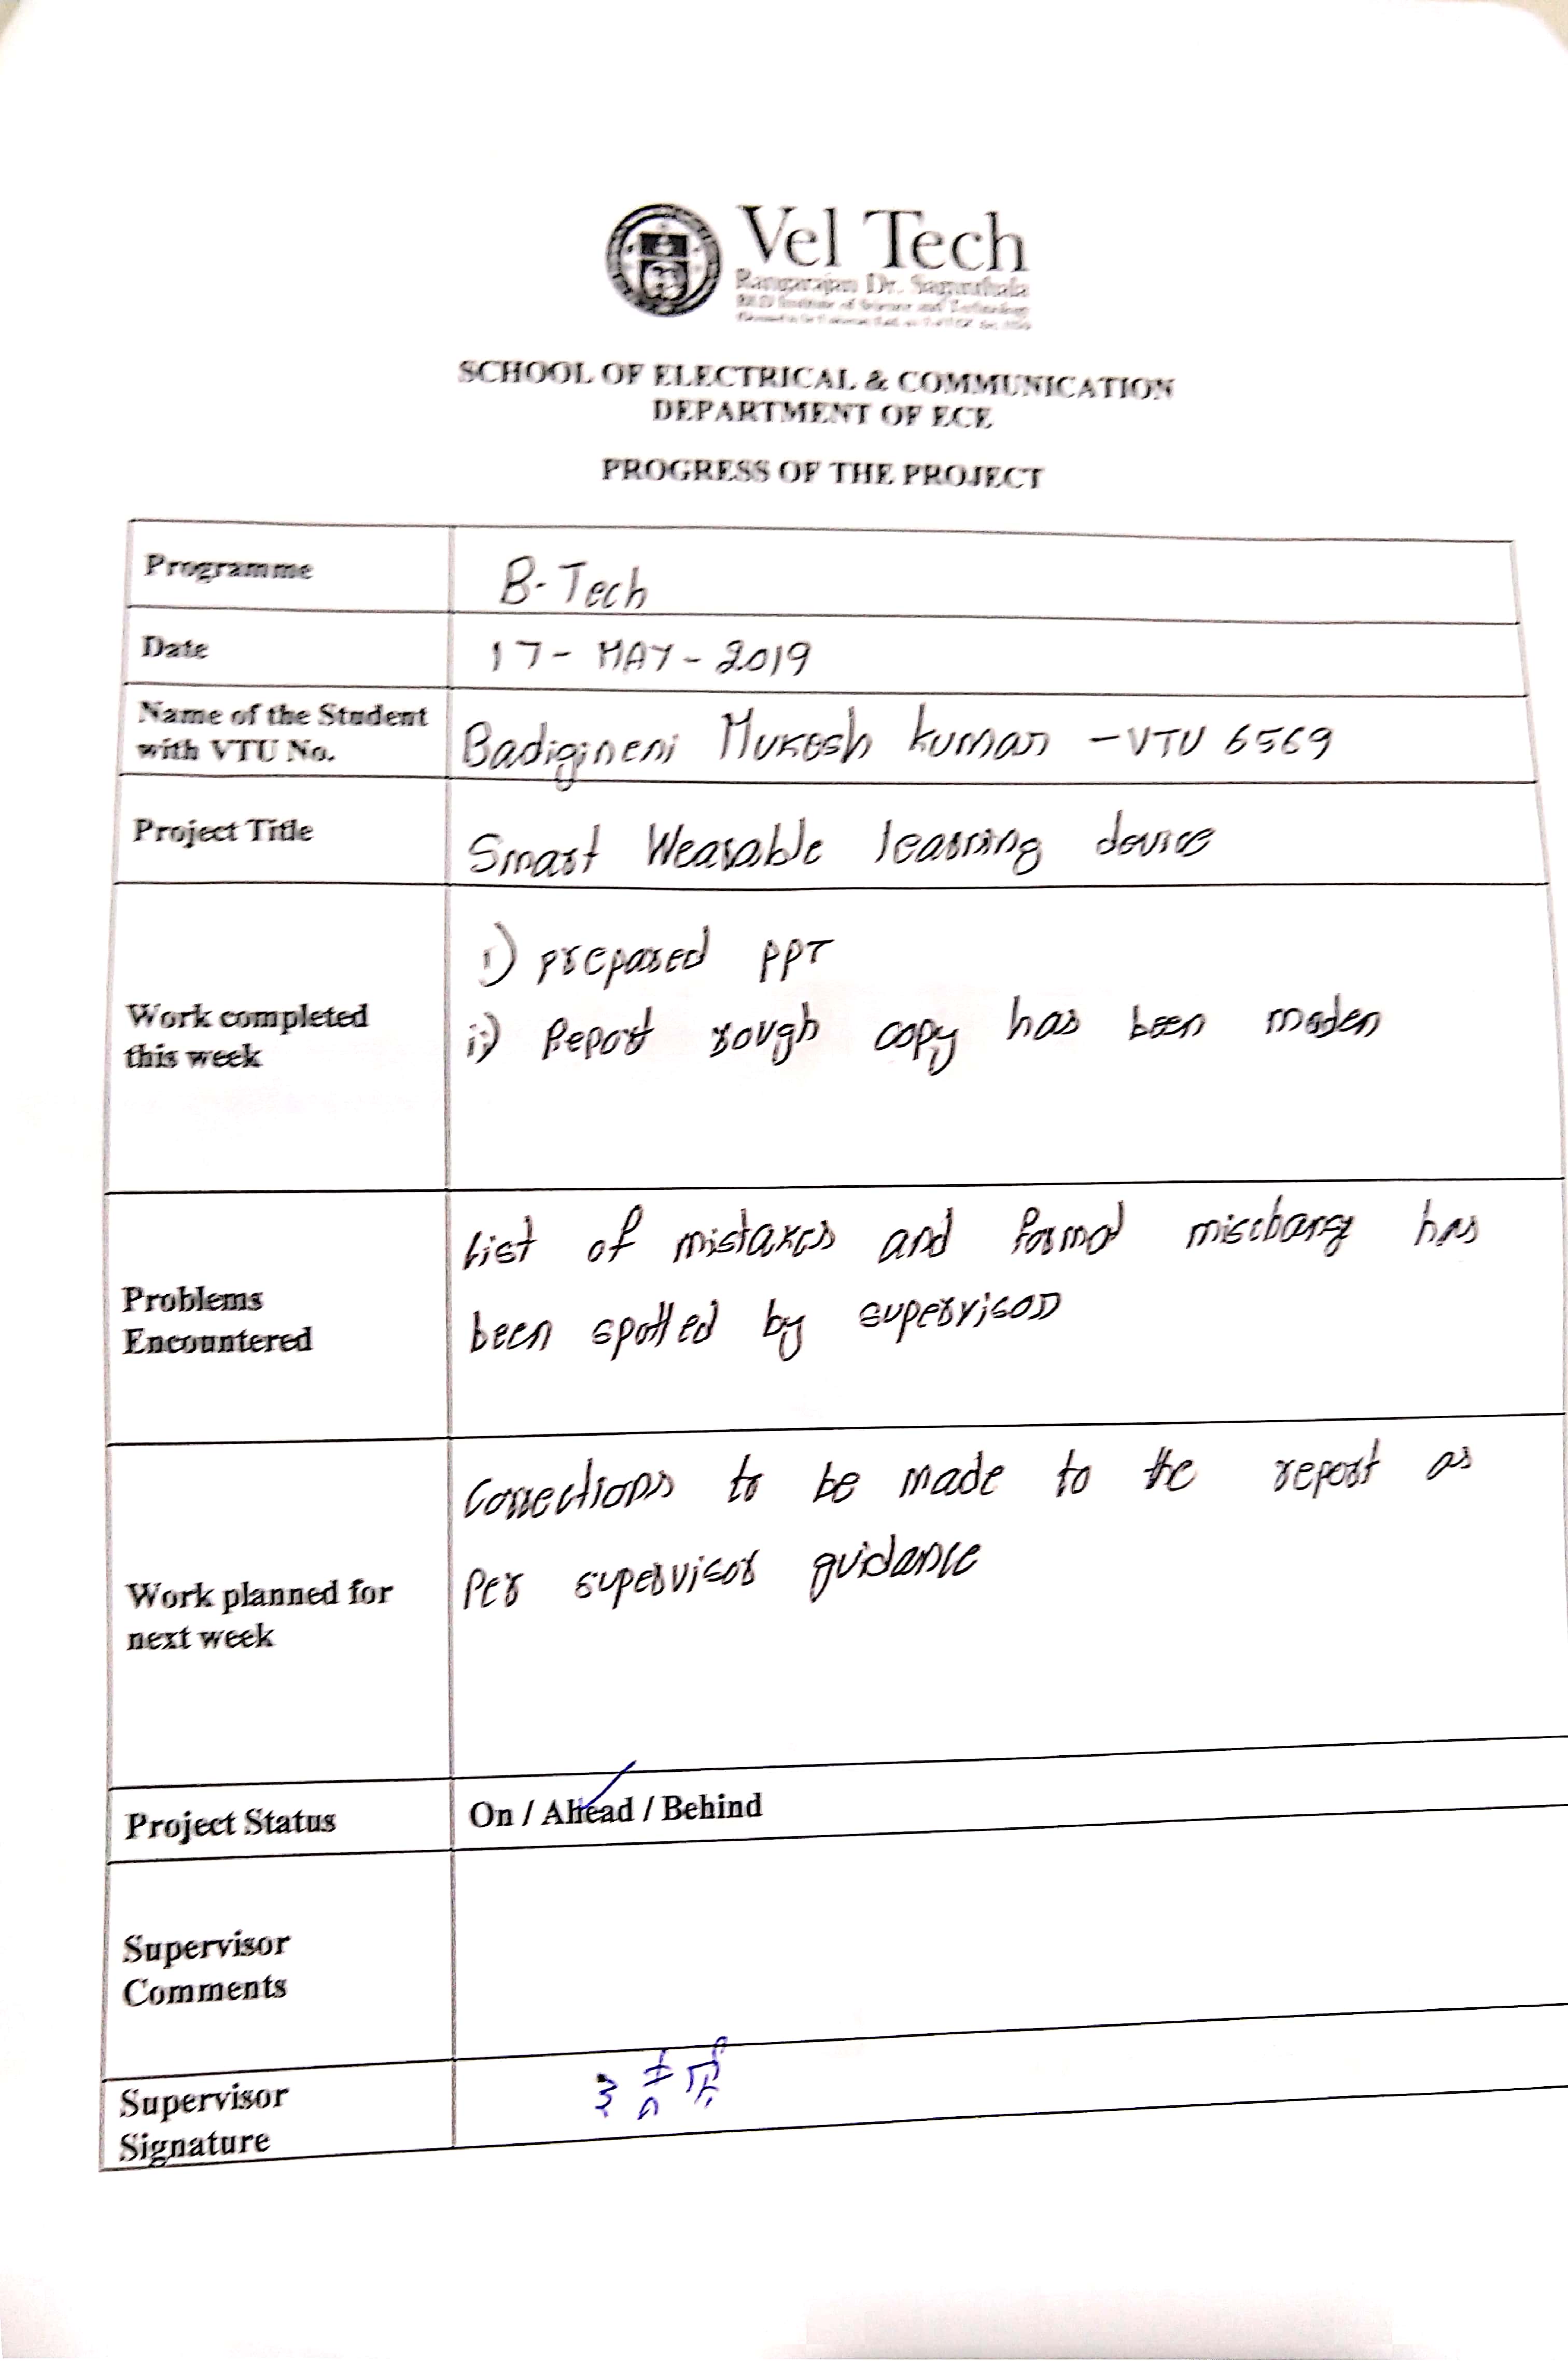 Vel Tech
Rangarajan Dr. Sagunthala
R&D Institute of Science and Technology
SCHOOL OF ELECTRICAL & COMMUNICATION
DEPARTMENT OF ECE
PROGRESS OF THE PROJECT
Programme
B-Tech
Date
17-MAY-2019
Name of the Student
with VTU No.
Badigineni Mukesh kumar - VTU 6569
Project Title
Smart Wearable learning device
Work completed
this week
i) prepared PPT
ii) Report rough copy has been maden
Problems
Encountered
List of mistakes and has
been spotted by supervisor
Work planned for
next week
Corrections to be made to the report as
Per supervisor guidance
Project Status
On / Ahead / Behind
Supervisor
Comments
Supervisor
Signature